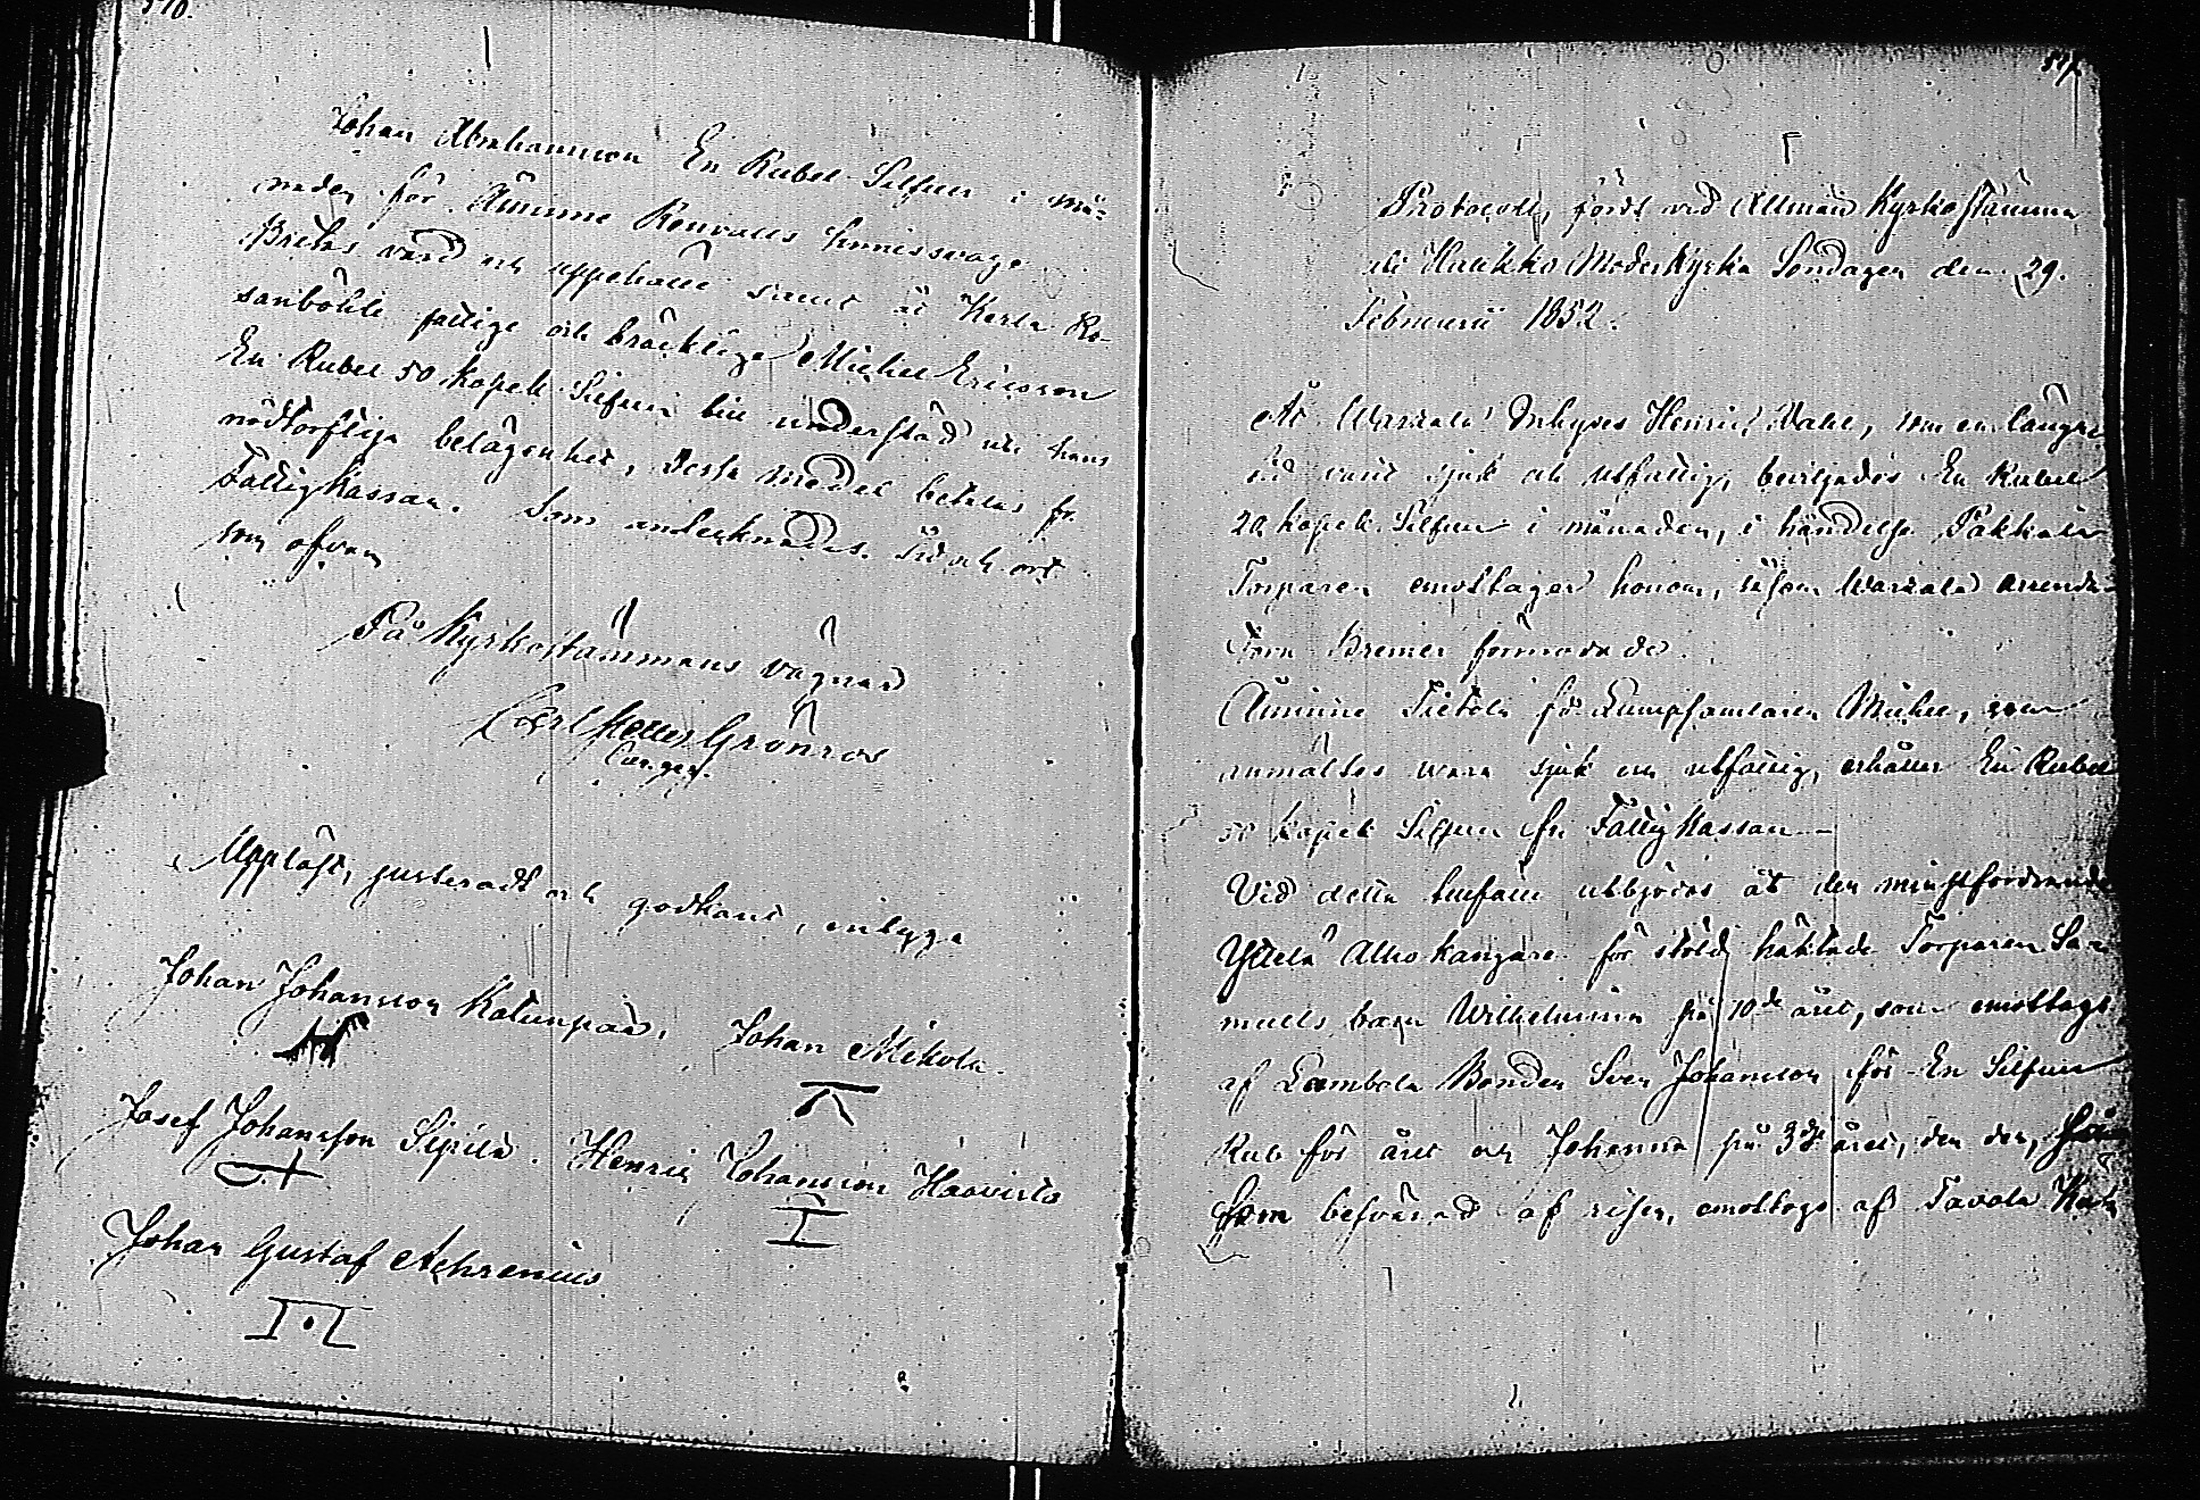 510.
Johan Abrahamsson En Rubel Silfver i må-
naden för Åminne Renvalls sinnessvage
Britas vård och uppehälle samt åt Karla Ro-
sanböhle fattige och bräcklige Michel Ericsson
En Rubel 50 kopek Silfver till understöd uti hans
nödtorftiga belägenhet, dessa medel betalas fr.
Fattigkassan. Som antecknades. Tid och ort
som ofvan
På Kyrkostämmans vägnar
Carl Grönros
Uppläst, justeradt och godkänt, intyga
Johan Johansson Katunpää, Johan Mikola.
Josef Johansson Sipilä. Henric Johansson Haavisto
Johan Gustaf Aehrenius
511.
Protocoll, fördt vid Allmän Kyrkostämma
uti Halikko Moderkyrka Söndagen den 29.
Februarii 1852.
Åt Inhyses Henric Dahl, som en längre
tid varit sjuk och utfattig, beviljades En Rubel
20 kopek Silfver i månaden, i händelse
Torparen emottager honom, såsom arrenda-
torn Bremer förmodade.
Åminne Michel, som
anmältes vara sjuk och utfattig, erhåller En Rubel
50 kopek Silfver fr. Fattigkassan.—
Vid detta tillfälle utbjödos åt den minstfordrande
Alhokangare för stöld häktade Torparen Sa-
muels barn Wilhelmina på 10de året, som emottogs
af Bonden Sven Johansson för En Silfver
Rub. för året och Johanna på 3dje året, den der,
som besvärad af risen, emottogs af Tavola